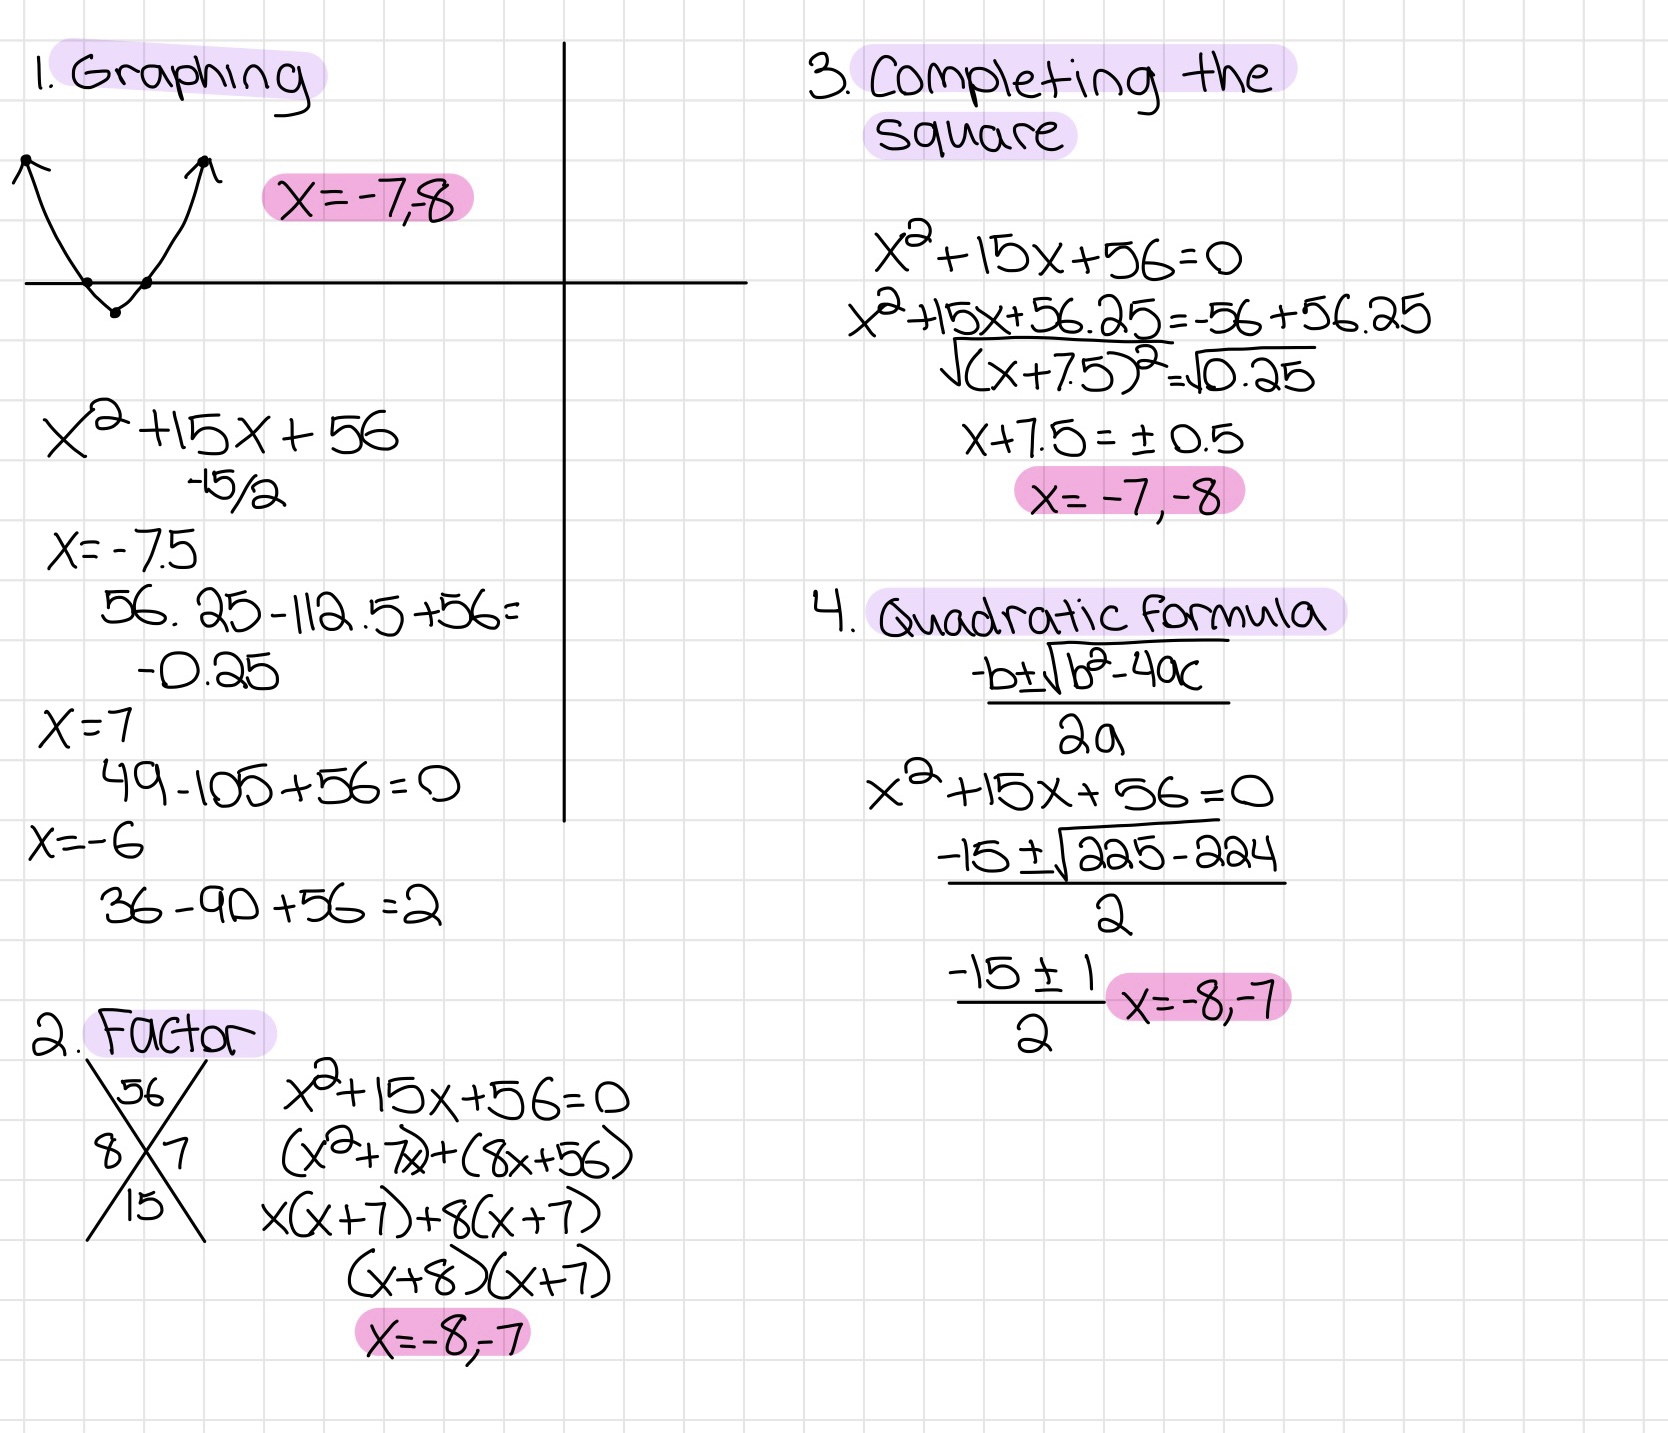 1. Graphing
x=-7,-8
x²+15x+56
-15/2
x=-7.5
56.25-112.5+56=
-0.25
x=7
49-105+56=0
x=-6
36-90+56=2
2. Factor
56
8 7
15
x²+15x+56=0
(x²+7x)+(8x+56)
x(x+7)+8(x+7)
(x+8)(x+7)
x=-8,-7
3. Completing the
square
x²+15x+56=0
x²+15x+56.25=-56+56.25
√(x+7.5)²=√0.25
x+7.5=±0.5
x=-7,-8
4. Quadratic formula
-b±√b²-4ac
2a
x²+15x+56=0
-15±√225-224
2
-15±1
2
x=-8,-7